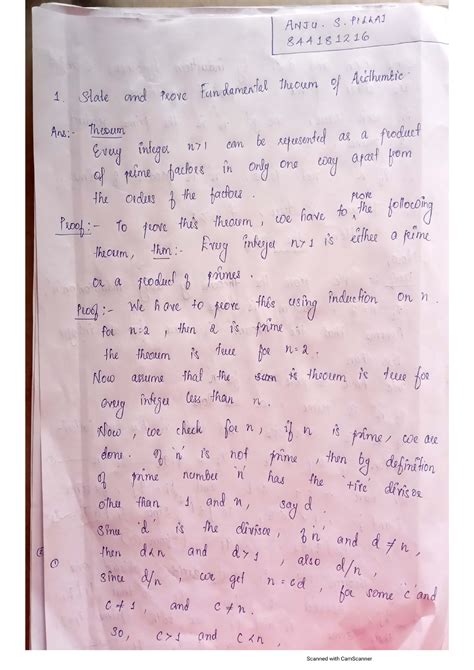 ANJU. S. PILLAI
844181216
1. State and Prove Fundamental theorem of Arithmetic.
Ans:- Theorem
Every integer n>1 can be represented as a product
of prime factors in only one way apart from
the orders of the factors.
Proof:- To prove this theorem, we have to prove the following
theorem, thm:- Every integer n>1 is either a prime
or a product of primes.
Proof:- We have to prove this using induction on n.
for n=2, then 2 is prime
the theorem is true for n=2.
Now assume that the is theorem is true for
every integer less than n.
Now, we check for n, if n is prime, we are
done. If 'n' is not prime, then by definition
of prime number 'n' has the '+ive' divisor
other than 1 and n, say d.
Since 'd' is the divisor of 'n' and d ≠ n,
then d<n and d>1, also d/n,
Since d/n, we get n=cd, for some 'c' and
c ≠ 1, and c ≠ n.
So, c>1 and c<n,
Scanned with CamScanner